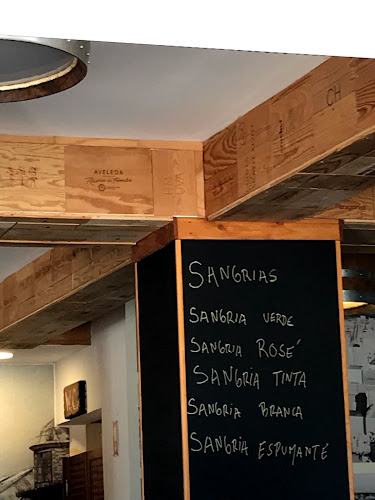 AVELEDA
SANGRIAS
SANGRIA VERDE
SANGRIA ROSÉ
SANGRIA TINTA
SANGRIA BRANCA
SANGRIA ESPUMANTE